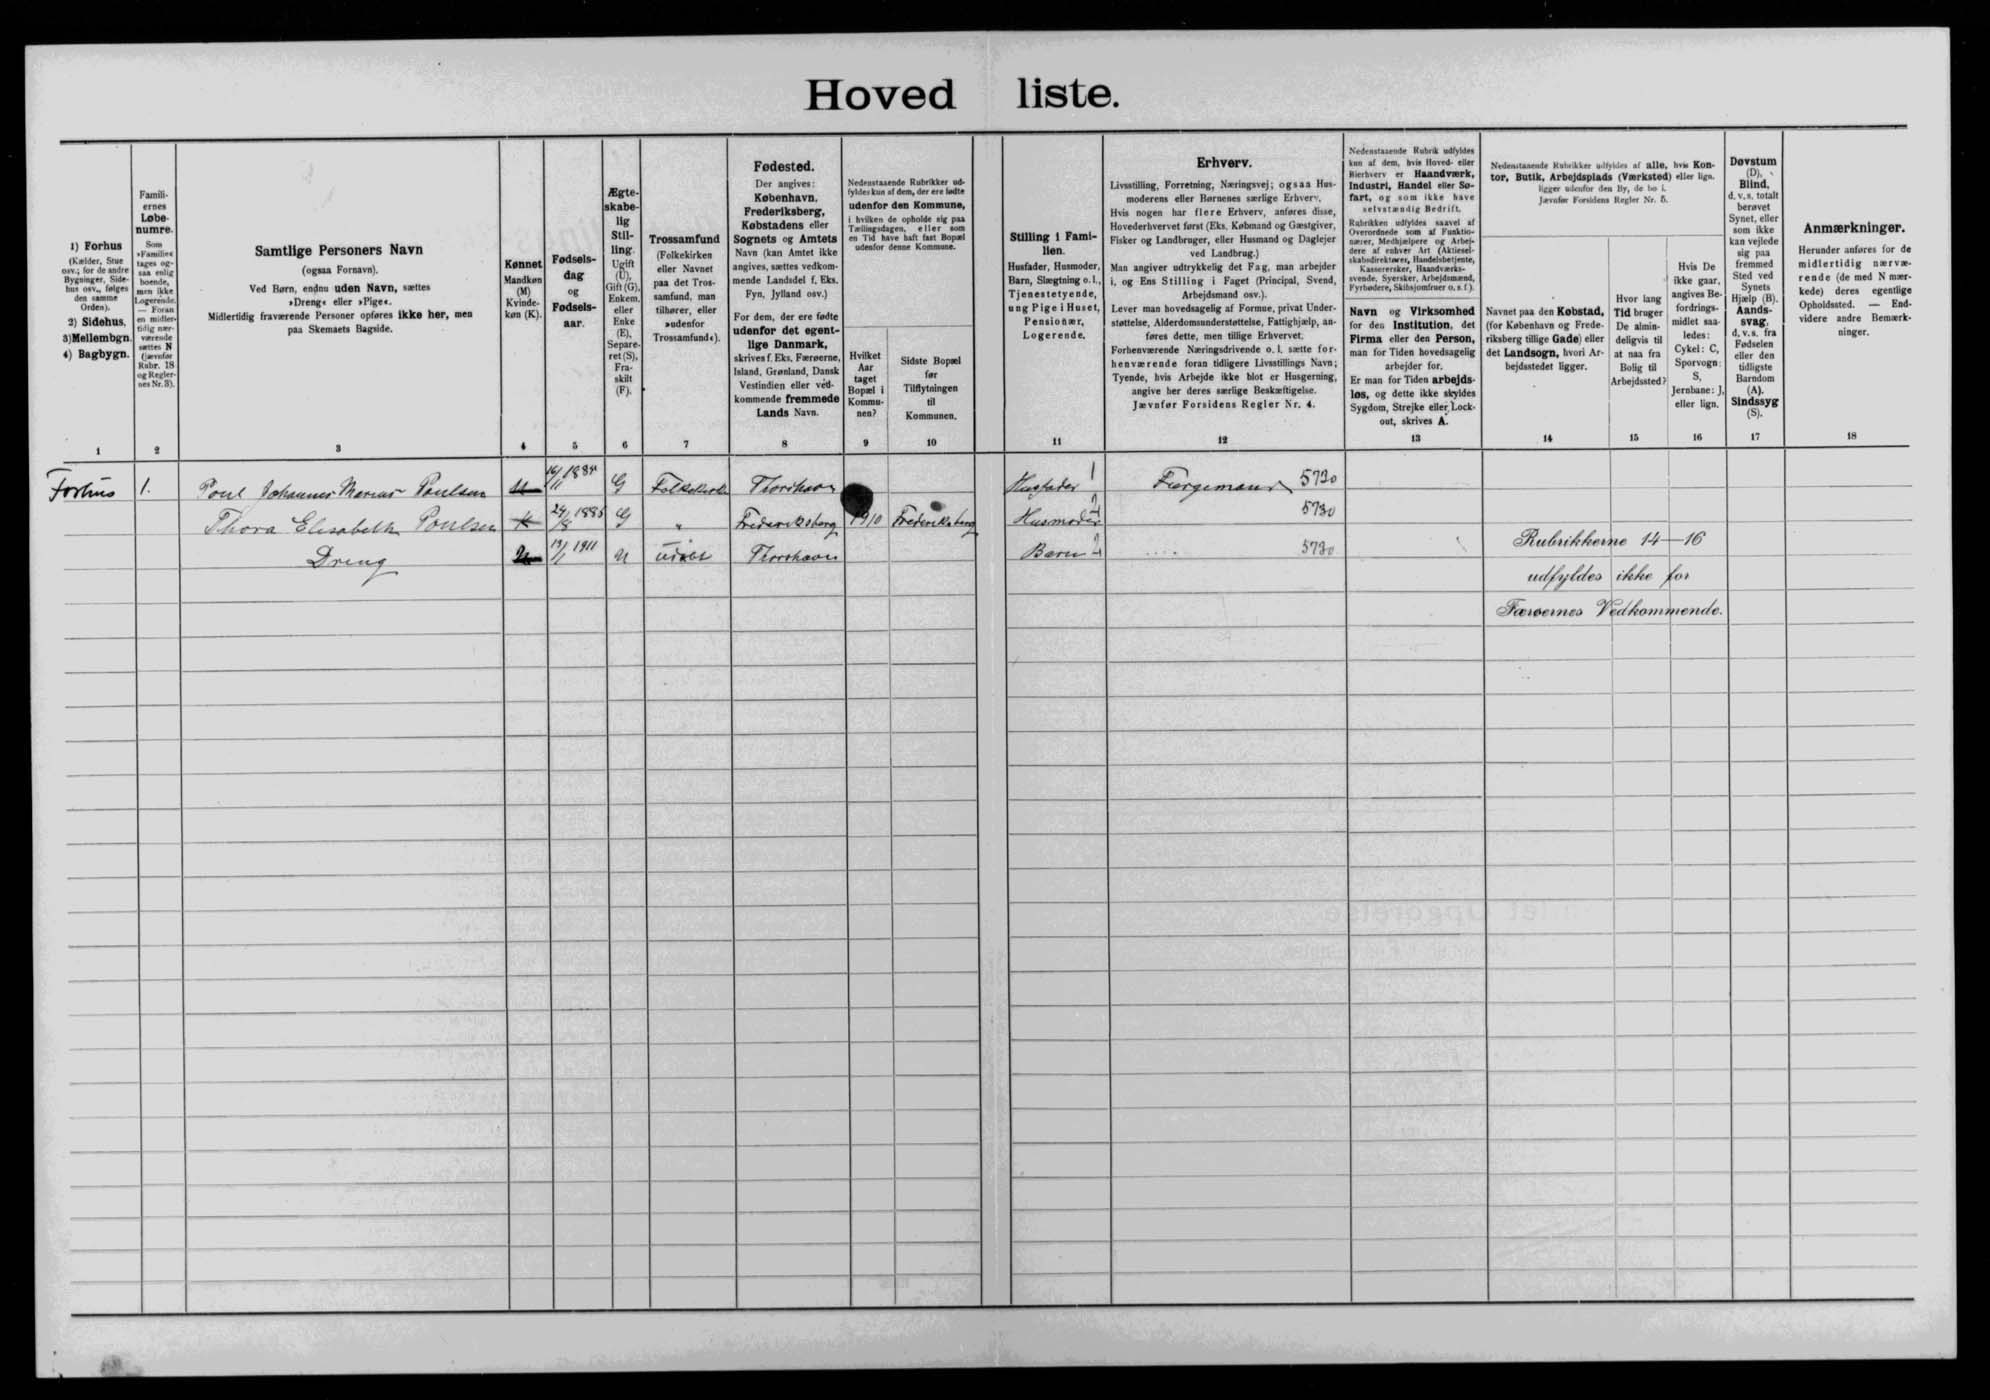 Hovedliste.
1) Forhus
(Kælder, Stue
osv.; for de andre
Bygninger, Side-
hus osv., følges
den samme
Orden).
2) Sidehus.
3) Mellembgn.
4) Bagbygn.
1
Famili-
ernes
Løbe-
numre.
Som
»Familie«
tages og-
saa enlig
boende,
men ikke
Logerende.
— Foran
en midler-
tidig nær-
værende
sættes N
(jævnfør
Rubr. 18
og Regler-
nes Nr. 3).
2
Samtlige Personers Navn
(ogsaa Fornavn).
Ved Børn, endnu uden Navn, sættes
»Dreng« eller »Pige«.
Midlertidig fraværende Personer opføres ikke her, men
paa Skemaets Bagside.
3
Kønnet
Mandkøn
(M)
Kvinde-
køn (K).
4
Fødsels-
dag
og
Fødsels-
aar.
5
Ægte-
skabe-
lig
Stil-
ling.
Ugift
(U),
Gift (G),
Enkem.
eller
Enke
(E),
Separe-
ret (S),
Fra-
skilt
(F).
6
Trossamfund
(Folkekirken
eller Navnet
paa det Tros-
samfund, man
tilhører, eller
»udenfor
Trossamfund«).
7
Fødested.
Der angives:
København,
Frederiksberg,
Købstadens eller
Sognets og Amtets
Navn (kan Amtet ikke
angives, sættes vedkom-
mende Landsdel f. Eks.
Fyn, Jylland osv.)
For dem, der ere fødte
udenfor det egent-
lige Danmark,
skrives f. Eks. Færøerne,
Island, Grønland, Dansk
Vestindien eller ved-
kommende fremmede
Lands Navn.
8
Nedenstaaende Rubrikker ud-
fyldes kun af dem, der ere fødte
udenfor den Kommune,
i hvilken de opholde sig paa
Tællingsdagen, eller som
en Tid have haft fast Bopæl
udenfor denne Kommune.
Hvilket
Aar
taget
Bopæl i
Kommu-
nen?
9
Sidste Bopæl
før
Tilflytningen
til
Kommunen.
10
Stilling i Fami-
lien.
Husfader, Husmoder,
Barn, Slægtning o. l.,
Tjenestetyende,
ung Pige i Huset,
Pensionær,
Logerende.
11
Erhverv.
Livsstilling, Forretning, Næringsvej; ogsaa Hus-
moderens eller Børnenes særlige Erhverv.
Hvis nogen har flere Erhverv, anføres disse,
Hovederhvervet først (Eks. Købmand og Gæstgiver,
Fisker og Landbruger, eller Husmand og Daglejer
ved Landbrug.)
Man angiver udtrykkelig det Fag, man arbejder
i, og Ens Stilling i Faget (Principal, Svend,
Arbejdsmand osv.).
Lever man hovedsagelig af Formue, privat Under-
støttelse, Alderdomsunderstøttelse, Fattighjælp, an-
føres dette, men tillige Erhvervet.
Forhenværende Næringsdrivende o. l. sætte for-
henværende foran tidligere Livsstillings Navn;
Tyende, hvis Arbejde ikke blot er Husgerning,
angive her deres særlige Beskæftigelse.
Jævnfør Forsidens Regler Nr. 4.
12
Nedenstaaende Rubrik udfyldes
kun af dem, hvis Hoved- eller
Bierhverv er Haandværk,
Industri, Handel eller Sø-
fart, og som ikke have
selvstændig Bedrift.
Rubrikken udfyldes saavel af
Overordnede som af Funktio-
nærer, Medhjælpere og Arbej-
dere af enhver Art (Aktiesel-
skabsdirektører, Handelsbetjente,
Kasserersker, Haandværks-
svende, Syersker, Arbejdsmænd,
Fyrbødere, Skibsjomfruer o. s. f.).
Navn og Virksomhed
for den Institution, det
Firma eller den Person,
man for Tiden hovedsagelig
arbejder for.
Er man for Tiden arbejds-
løs, og dette ikke skyldes
Sygdom, Strejke eller Lock-
out, skrives A.
13
Nedenstaaende Rubrikker udfyldes af alle, hvis Kon-
tor, Butik, Arbejdsplads (Værksted) eller lign.
ligger udenfor den By, de bo i.
Jævnfør Forsidens Regler Nr. 5.
Navnet paa den Købstad,
(for København og Frede-
riksberg tillige Gade) eller
det Landsogn, hvori Ar-
bejdsstedet ligger.
14
Hvor lang
Tid bruger
De almin-
deligvis til
at naa fra
Bolig til
Arbejdssted?
15
Hvis De
ikke gaar,
angives Be-
fordrings-
midlet saa-
ledes:
Cykel: C,
Sporvogn:
S,
Jernbane: J,
eller lign.
16
Døvstum
(D),
Blind,
d. v. s. totalt
berøvet
Synet, eller
som ikke
kan vejlede
sig paa
fremmed
Sted ved
Synets
Hjælp (B).
Aands-
svag,
d. v. s. fra
Fødselen
eller den
tidligste
Barndom
(A).
Sindssyg
(S).
17
Anmærkninger.
Herunder anføres for de
midlertidig nærvæ-
rende (de med N mær-
kede) deres egentlige
Opholdssted. — End-
videre andre Bemærk-
ninger.
18
Forhus 1. Poul Johannes Marius Poulsen M G Folkekirken Thorshavn Husfader 1 Færgemand 5730
Thora Elisabeth Poulsen K 24/8 1885 G " Frederiksberg 1910 Frederiksberg Husmoder 5730
Dreng M 1911 U udøbt Thorshavn Barn 5730
Rubrikkerne 14—16
udfyldes ikke for
Færøernes Vedkommende.